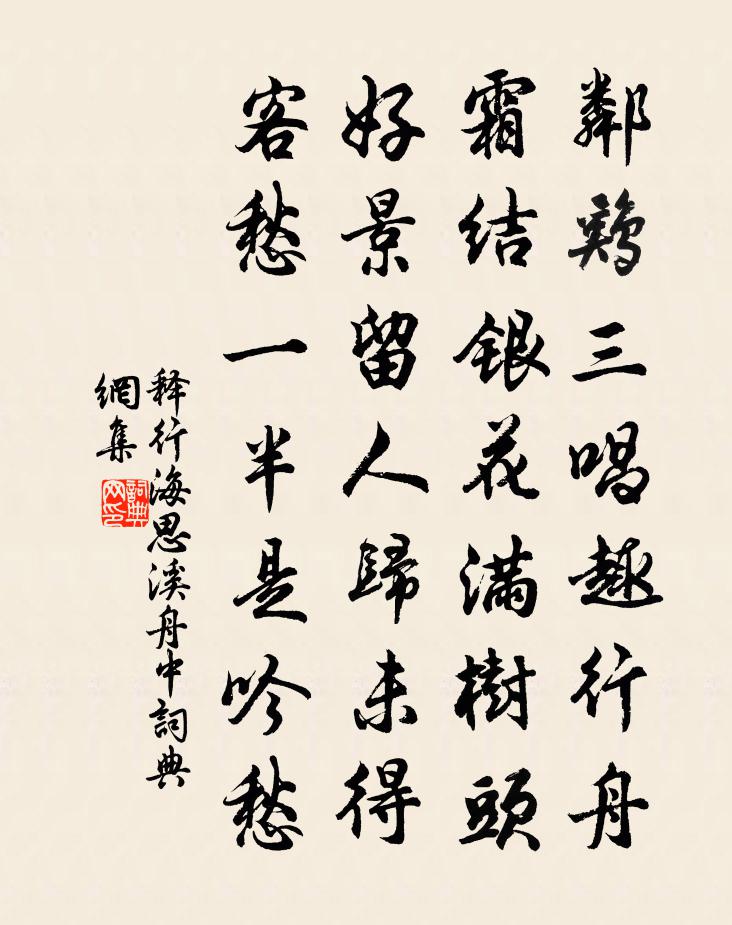 鄰鶏三唱趣行舟
霜結銀花滿樹頭
好景留人歸未得
客愁一半是吟愁
释行海思溪舟中詞典
網集
詞典
网印